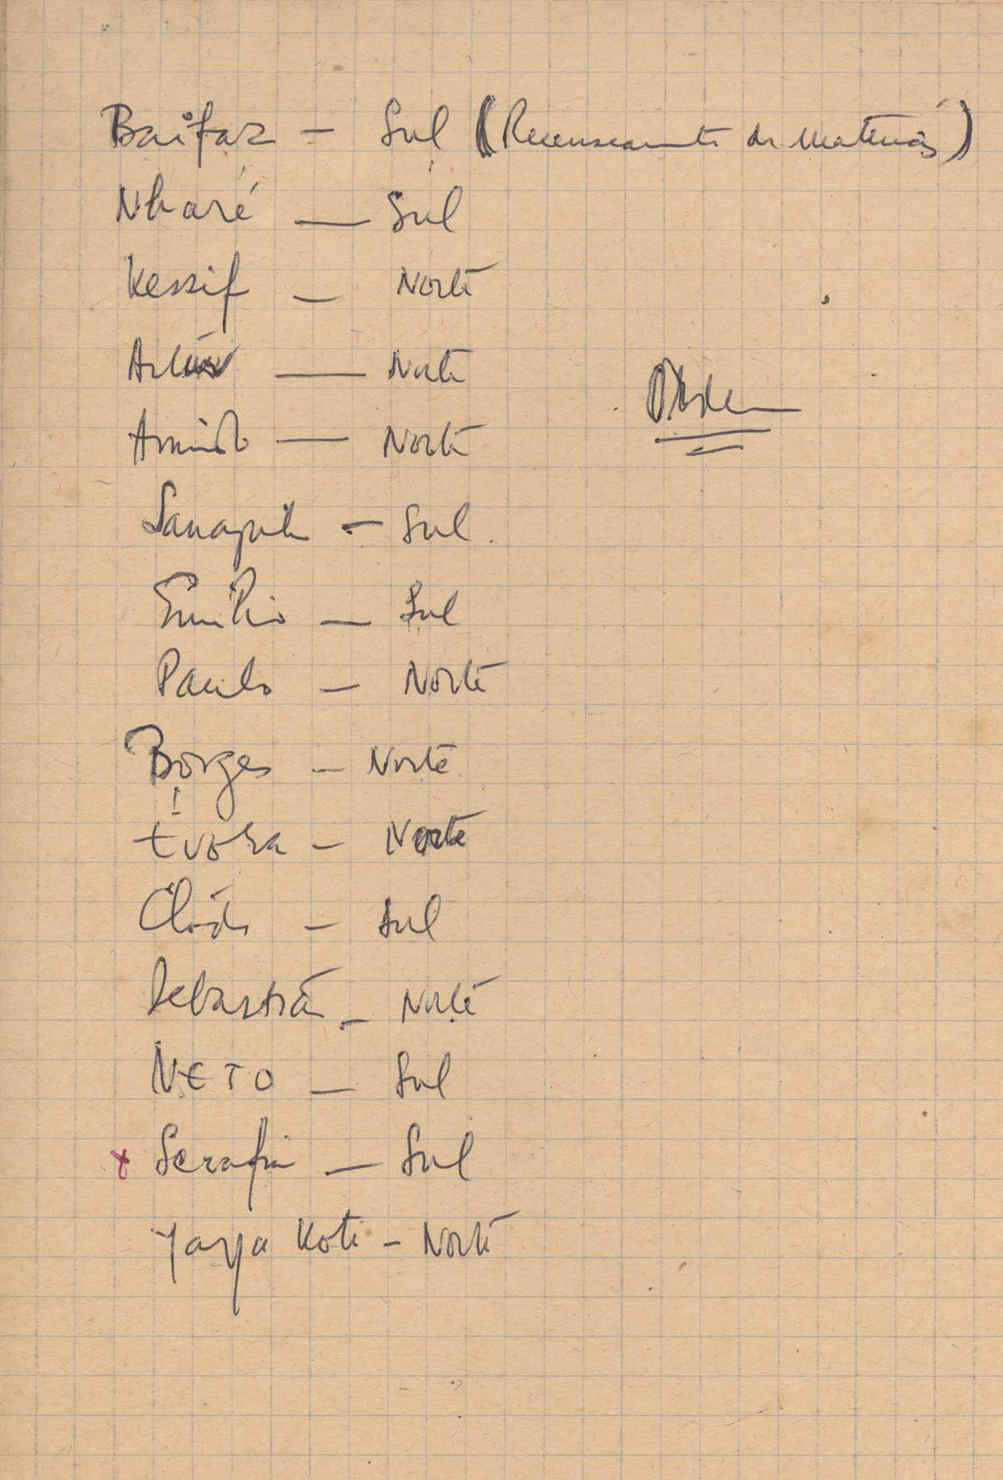 Baifaz – Sul (Recenseamento de Materiais)
Nharé — Sul
Kessif — Norte
Artur — Norte
Armindo — Norte
Sanapil — Sul
Emílio — Sul
Paulo — Norte
Borges — Norte
Évora — Norte
Sul
Sebastião — Norte
NETO — Sul
x Serafim — Sul
Yaya Koté – Norte